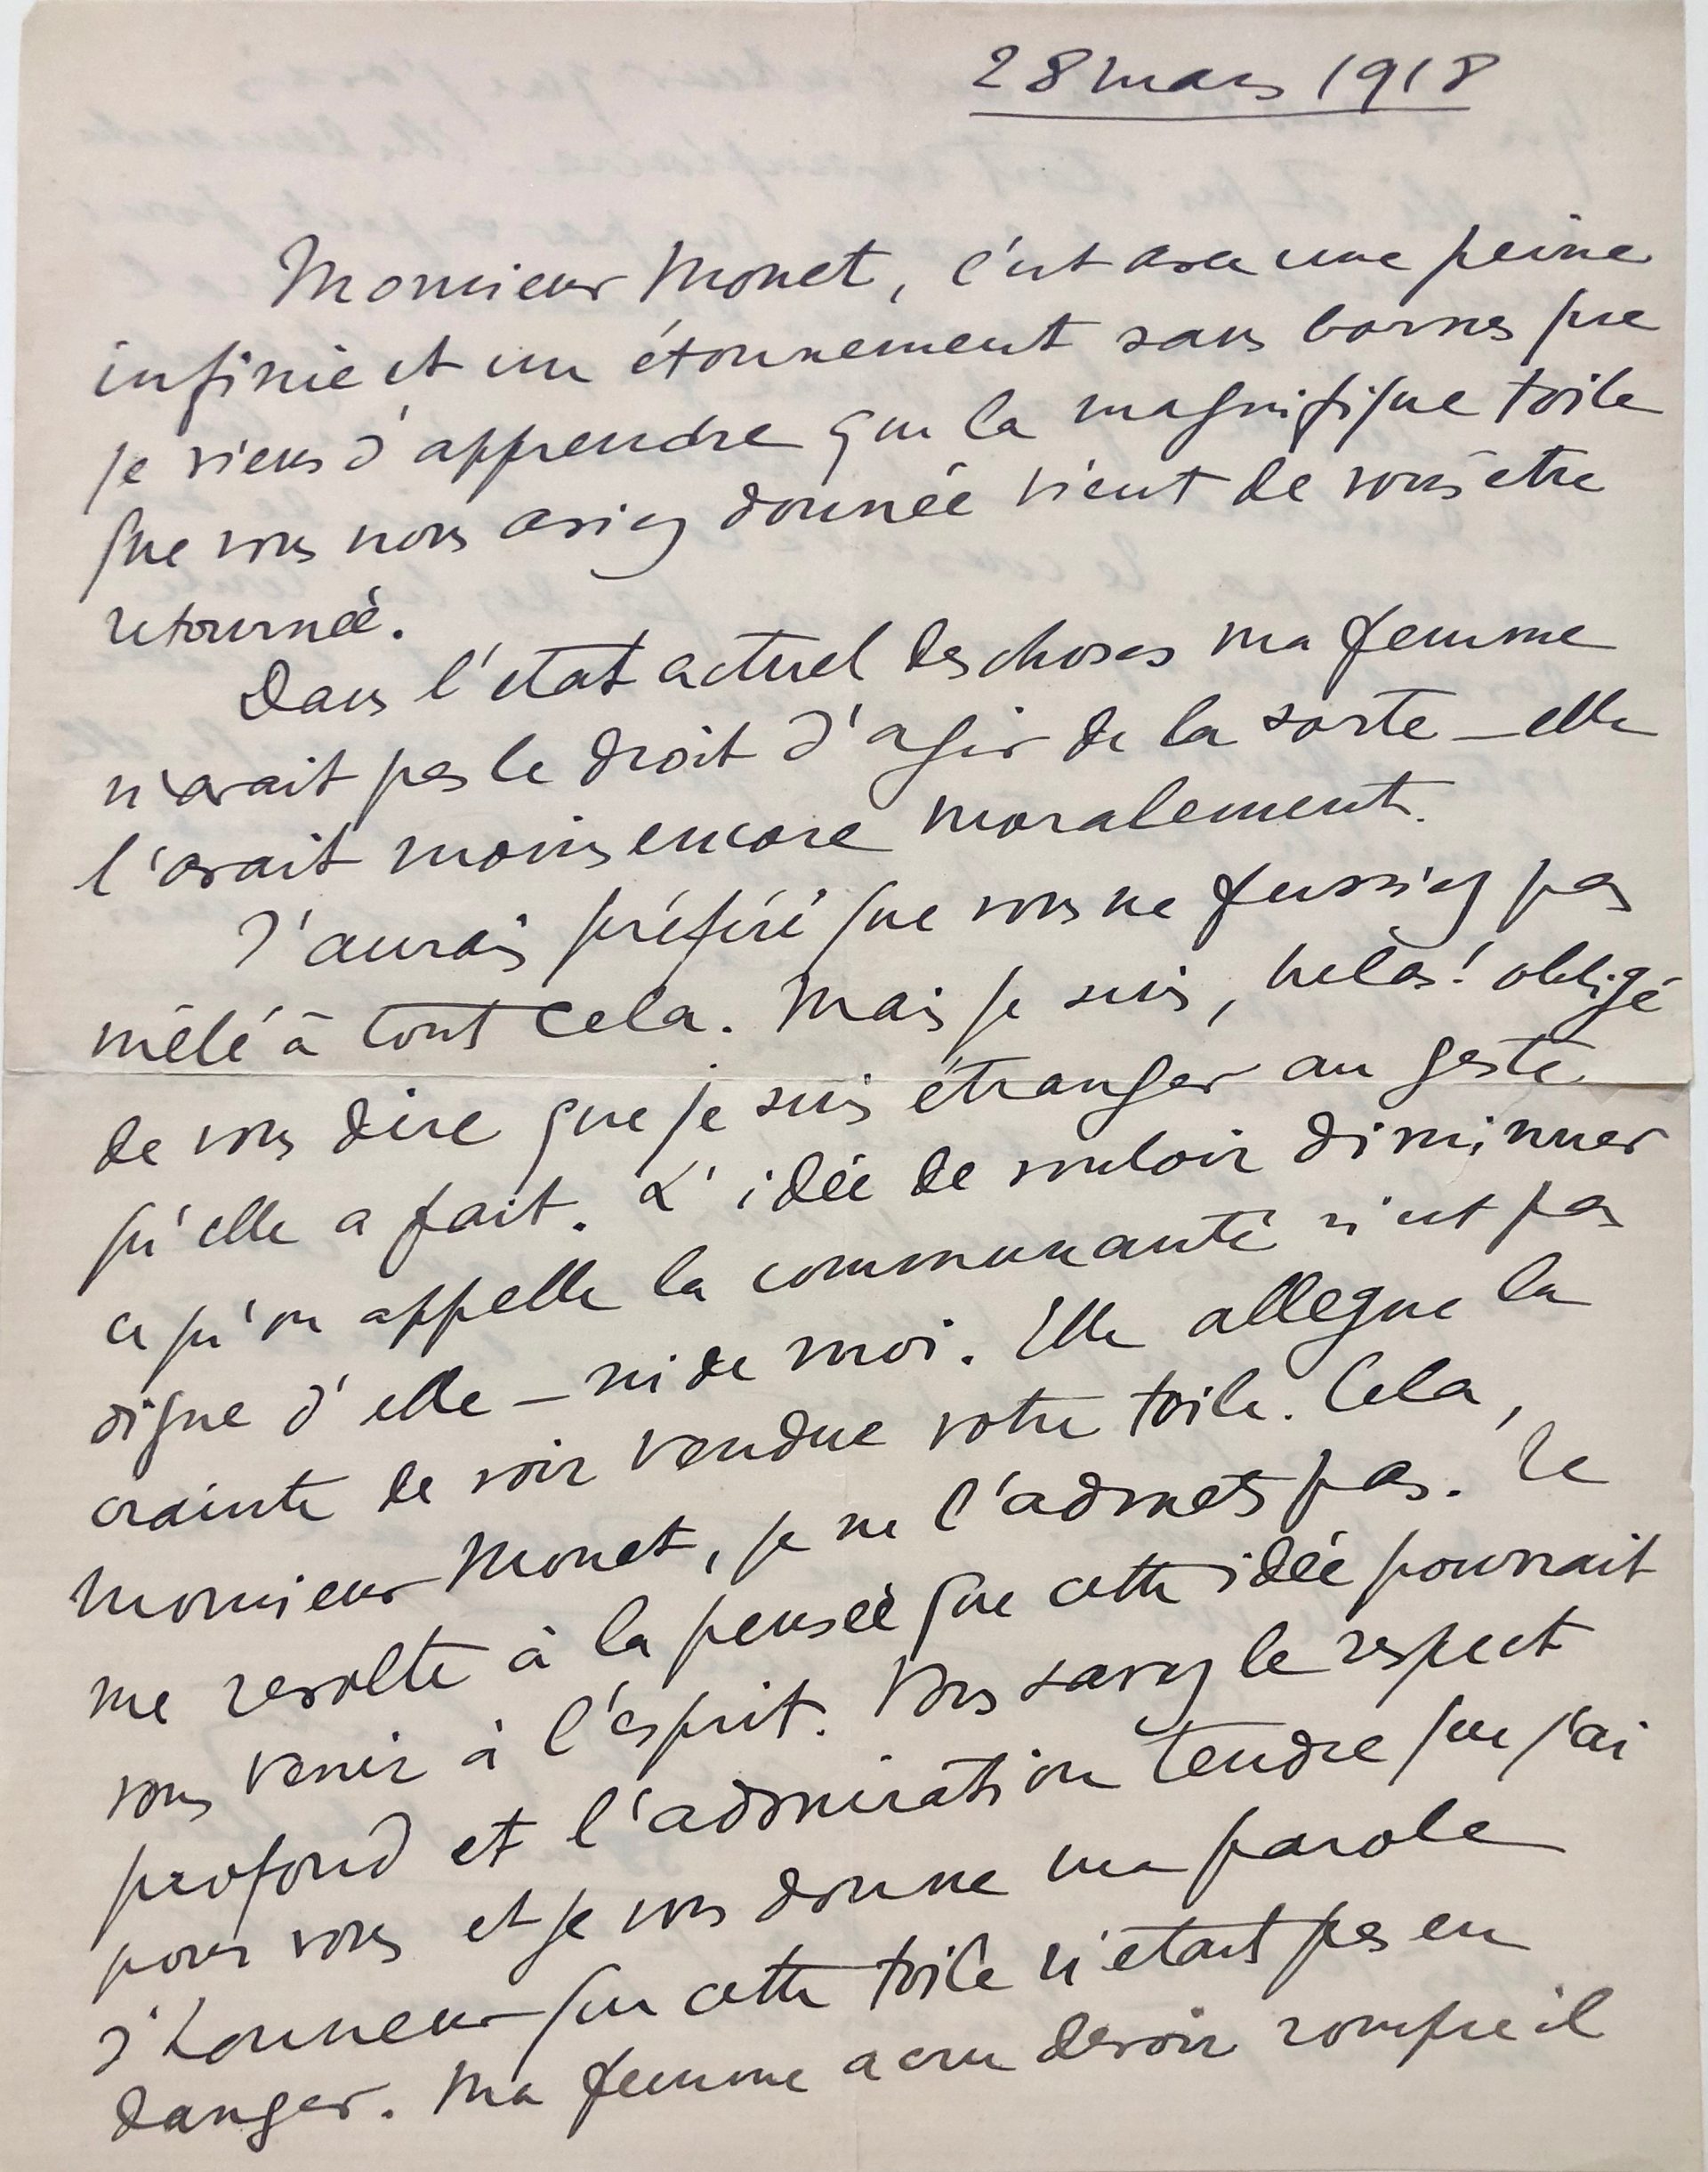 28 mars 1918
Monsieur Monet, c'est avec une peine
infinie et un étonnement sans bornes que
je viens d'apprendre que la magnifique toile
que vous nous aviez donnée vient de vous être
retournée.
Dans l'etat actuel des choses ma femme
n'avait pas le droit d'agir de la sorte – elle
l'avait moins encore moralement.
J'aurais préféré que vous ne fussiez pas
mêlé à tout cela. Mais je suis, helàs! obligé
de vous dire que je suis étranger au geste
qu'elle a fait. L'idée de vouloir diminuer
ce qu'on appelle la communauté n'est pas
digne d'elle – ni de moi. Elle allegue la
crainte de voir vendue votre toile. Cela,
Monsieur Monet, je ne l'admets pas. Je
me revolte à la pensée que cette idée pourrait
vous venir à l'esprit. Vous savez le respect
profond et l'admiration tendre que j'ai
pour vous et je vous donne ma parole
d'honneur que cette toile n'etait pas en
danger. Ma femme a cru devoir rompre il